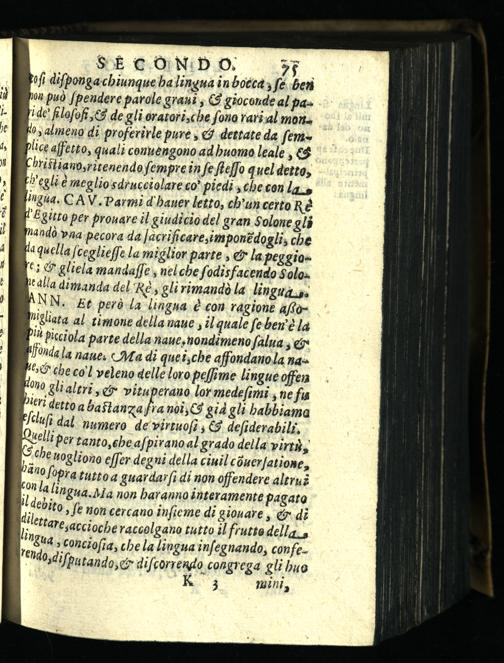 SECONDO. 75
cosi disponga chiunque ha lingua in bocca, se ben
non può spendere parole graui, & gioconde al pa-
ri de' filosofi, & de gli oratori, che sono rari al mon-
do, almeno di proferirle pure, & dettate da sem-
plice affetto, quali conuengono ad huomo leale, &
Christiano, ritenendo sempre in se stesso quel detto,
ch'egli è meglio sdrucciolare co' piedi, che con la
lingua. CAV. Parmi d'hauer letto, ch'un certo Rè
d'Egitto per prouare il giudicio del gran Solone gli
mandò vna pecora da sacrificare, imponẽdogli, che
da quella scegliesse la miglior parte, & la peggio-
re; & gliela mandasse, nel che sodisfacendo Solo-
ne alla dimanda del Rè, gli rimandò la lingua.
ANN. Et però la lingua è con ragione asso-
migliata al timone della naue, il quale se ben'è la
più picciola parte della naue, nondimeno salua, &
affonda la naue. Ma di quei, che affondano la na-
ue, & che co'l veleno delle loro pessime lingue offen
dono gli altri, & vituperano lor medesimi, ne fu
hieri detto a bastanza fra noi, & già gli habbiamo
esclusi dal numero de' virtuosi, & desiderabili.
Quelli per tanto, che aspirano al grado della virtù,
& che uogliono esser degni della ciuil cõuersatione,
hãno sopra tutto a guardarsi di non offendere altrui
con la lingua. Ma non haranno interamente pagato
il debito, se non cercano insieme di giouare, & di
dilettare, accioche raccolgano tutto il frutto della
lingua, conciosia, che la lingua insegnando, confe-
rendo, disputando, & discorrendo congrega gli huo
K 3 mini,